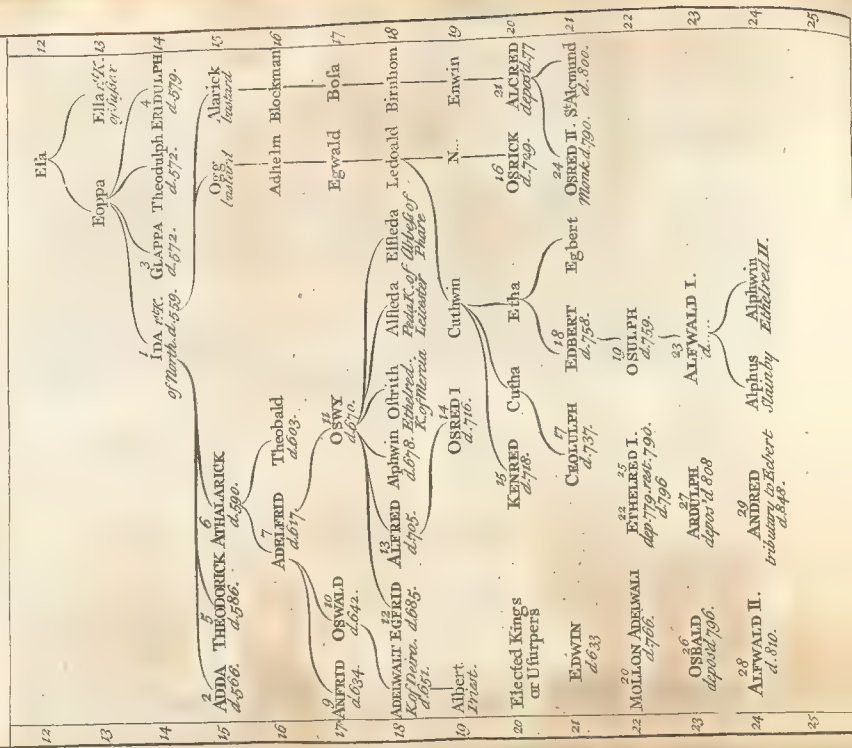 12 Eſa 12
13 Eoppa Ella 1st K. of Suſſex 13
14 1 IDA 1st K. of North. d. 559. 3 GLAPPA d. 572. Theodulph d. 572. 4 ERIDULPH d. 579. 14
15 2 ADDA d. 566. 5 THEODORICK d. 586. 6 ATHALARICK d. 590. Ogg baſtard Alarick baſtard 15
16 7 ADELFRID d. 617. Theobald d. 603. Adhelm Blockman 16
17 9 ANFRID d. 634. 10 OSWALD d. 642. 11 OSWY d. 670. Egwald Boſa 17
18 ADELWALT K. of Deira. d. 651. 12 EGFRID d. 685. 13 ALFRED d. 705. Alphwin d. 678. Oſtrith Ethelred K. of Mercia Alfleda Peda K. of Leiceſter Elfleda Abbeſs of Phare Ledoald Birnhom 18
19 Albert Prieſt. 14 OSRED I d. 716. Cuthwin N... Enwin 19
20 Elected Kings or Uſurpers 15 KENRED d. 718. Cutha Etha 16 OSRICK d. 729. 21 ALCRED depos'd. 77 20
21 EDWIN d. 633 17 CEOLULPH d. 737. 18 EDBERT d. 758. Egbert 24 OSRED II. Monk d. 790. St Alcmund d. 800. 21
22 20 MOLLON ADELWALI d. 766. 22 25 ETHELRED I. dep. 779. rest. 790. d. 796 19 OSULPH d. 759. 22
23 26 OSBALD depos'd 796. 27 ARDULPH depos'd 808 23 ALFWALD I. d..... 23
24 28 ALFWALD II. d. 810. 29 ANDRED tributary to Ecbert d. 848. Alphus Slain by Alphwin Ethelred II. 24
25 25